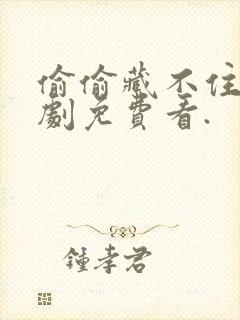 偷偷藏不住
劇免費看.
鍾孝君